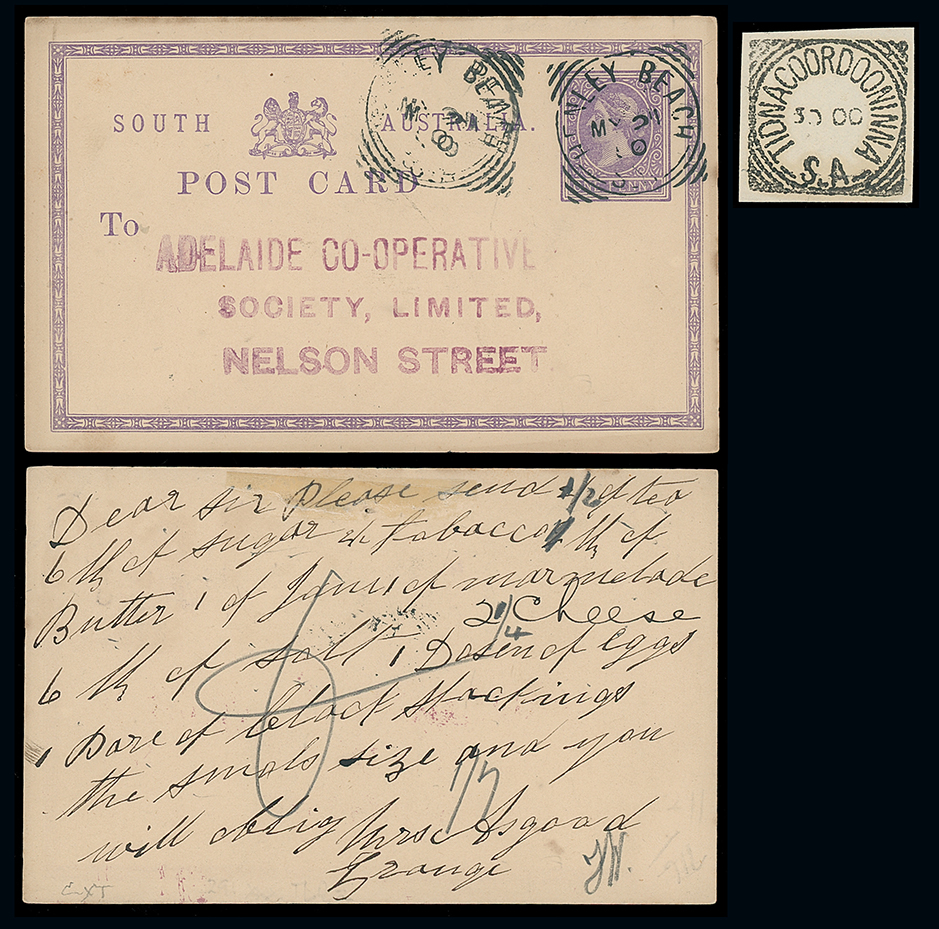 SOUTH AUSTRALIA.
POST CARD
To
HENLEY BEACH
MY
HENLEY BEACH
MY 21
PENNY
ADELAIDE CO-OPERATIVE
SOCIETY, LIMITED,
NELSON STREET
TIDNACOORDOONINNA
S.A.
Dear sir Please send 1/2 d tea
6 lb of sugar 4 tobacco lb of
Butter 1 of Jam 1 of marmelade
2 Cheese
1/4
6 lb of salt 1 Dosen of Eggs
1 Pare of black stockings
the smals size and you
will oblig Mrs Asgood
Grange
1/7
JW.
EXT